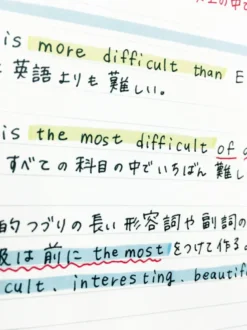 is more difficult than E
英語よりも難しい。
is the most difficult of a
すべての科目の中でいちばん難し
的つづりの長い形容詞や副詞の
級は前に the most をつけて作る
cult, interesting, beautif